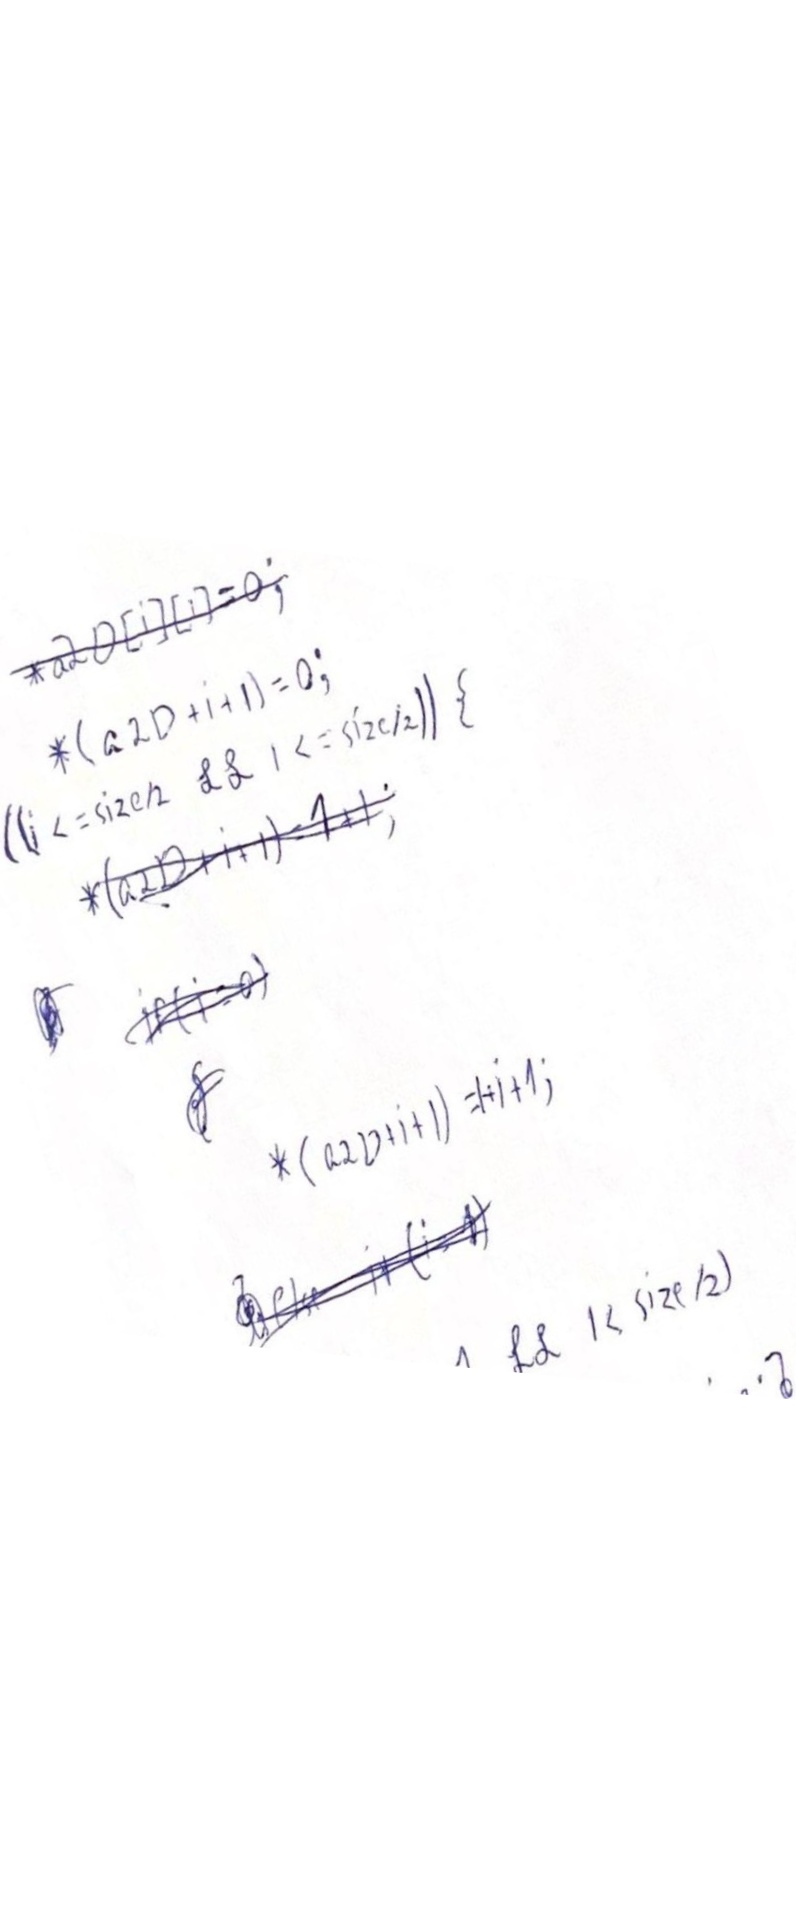 *a2D[i][i]=0;
*(a2D+i+1)=0;
((i<=size/2 && 1<=size/2)) {
*(a2D+i+1)=1+1;
if(i=0)
*(a2D+i+1)=1+i+1;
else if(i
&& 1< size/2)